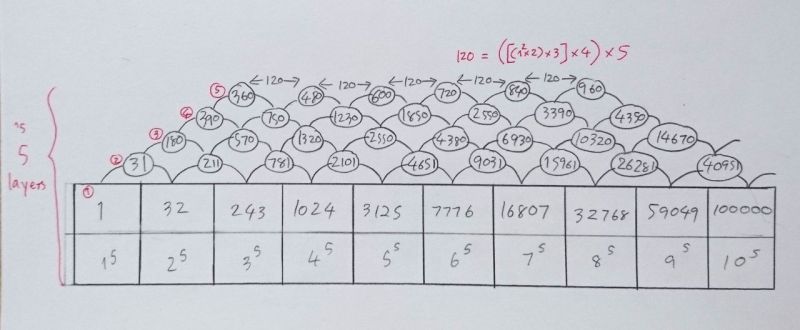 120 = ([(1²×2)×3]×4)×5
⑤ 360 ←120→ 480 ←120→ 600 ←120→ 720 ←120→ 840 ←120→ 960
④ 390 750 1230 1850 2550 3390 4350
③ 180 570 1320 2550 4380 6930 10320 14670
② 31 211 781 2101 4651 9031 15961 26281 40951
5
layers
①
1 32 243 1024 3125 7776 16807 32768 59049 100000
1⁵ 2⁵ 3⁵ 4⁵ 5⁵ 6⁵ 7⁵ 8⁵ 9⁵ 10⁵